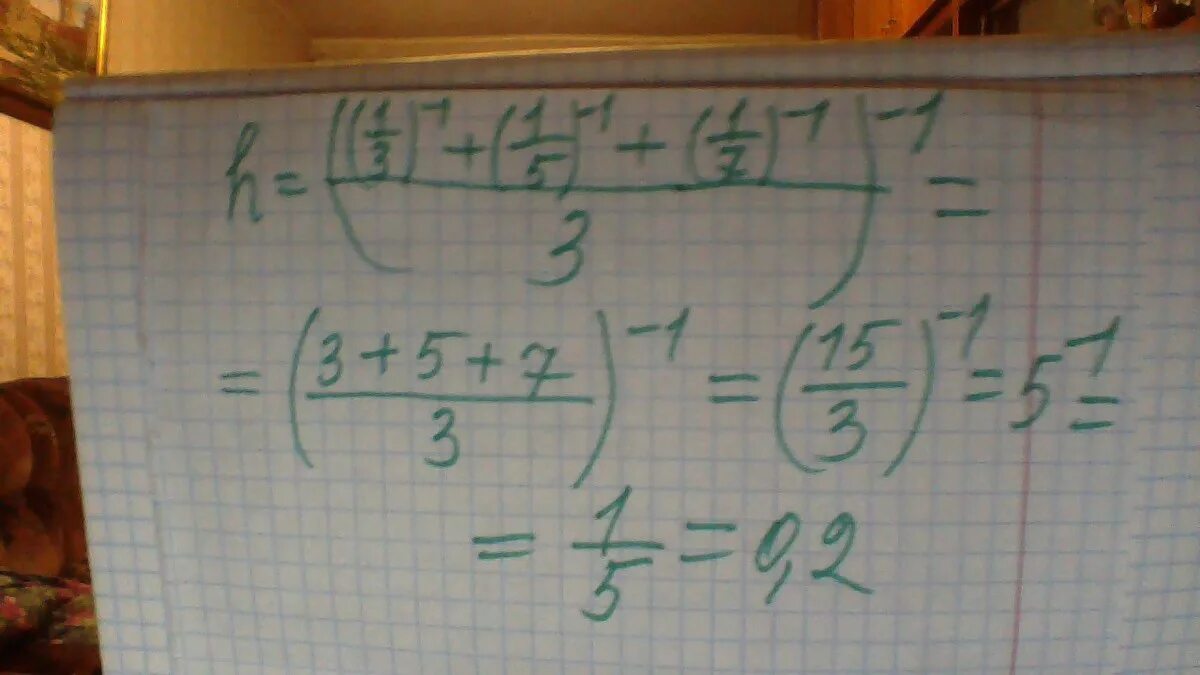 h = (((1/3)^-1 + (1/5)^-1 + (1/7)^-1)/3)^-1 =
= ((3+5+7)/3)^-1 = (15/3)^-1 = 5^-1 =
= 1/5 = 0,2